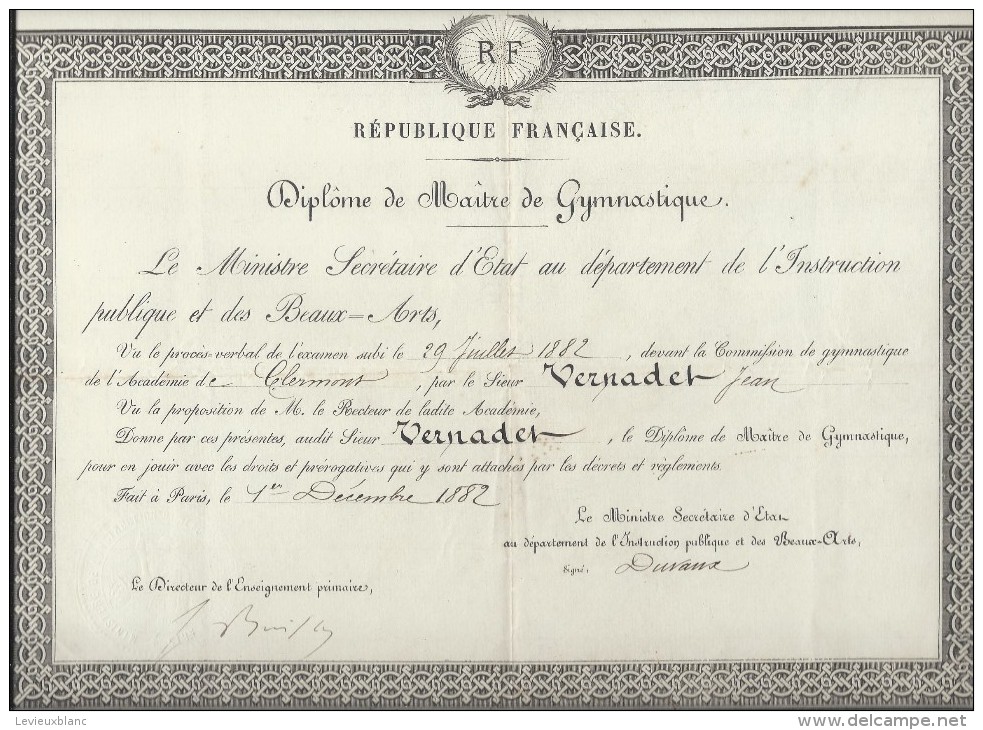 R F
RÉPUBLIQUE FRANÇAISE.
Diplôme de Maître de Gymnastique.
Le Ministre Secrétaire d'Etat au département de l'Instruction
publique et des Beaux=Arts,
Vu le procès-verbal de l'examen subi le 29 Juillet 1882, devant la Commission de gymnastique
de l'Académie de Clermont, par le Sieur Vernadet Jean
Vu la proposition de M. le Recteur de ladite Académie,
Donne par ces présentes, audit Sieur Vernadet, le Diplôme de Maître de Gymnastique,
pour en jouir avec les droits et prérogatives qui y sont attachés par les décrets et règlements.
Fait à Paris, le 1er Décembre 1882
Le Ministre Secrétaire d'Etat
au département de l'Instruction publique et des Beaux-Arts,
Signé, Duvaux
Le Directeur de l'Enseignement primaire,
Buisson
Levieuxblanc
www.delcampe.net